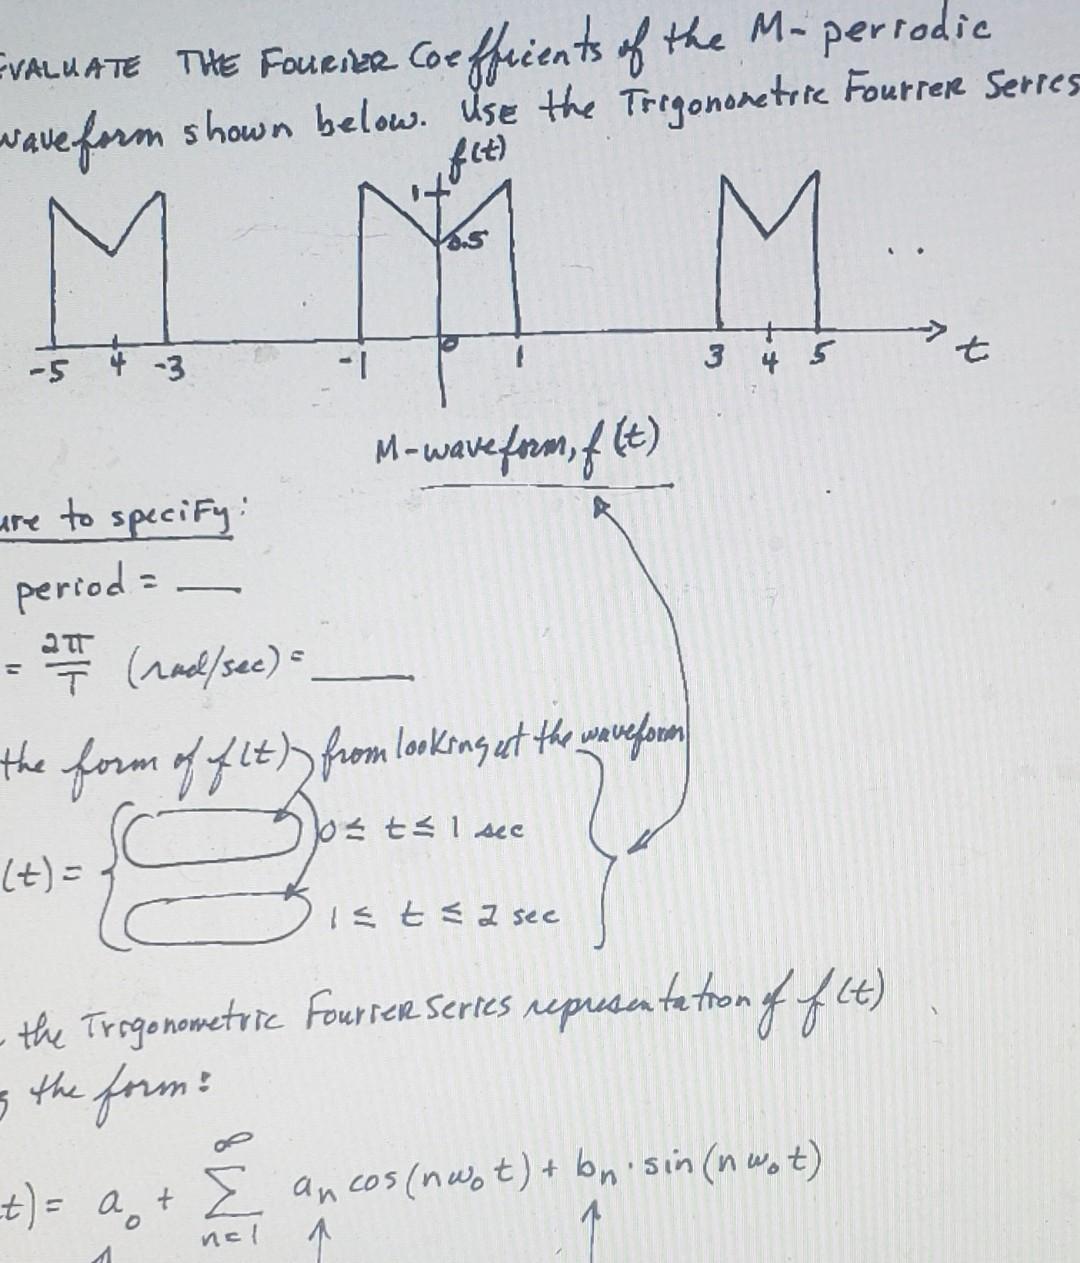 EVALUATE THE FOURIER Coefficients of the M-periodic
waveform shown below. Use the Trigonometric Fourier Series
f(t)
1
0.5
-5 4 -3 -1 0 1 3 4 5 t
M-waveform, f(t)
ure to specify:
period = __
= 2π/T (rad/sec) = ____
the form of f(t) from looking at the waveform
(t) = { 0 ≤ t ≤ 1 sec
1 ≤ t ≤ 2 sec
the Trigonometric Fourier Series representation of f(t)
g the form:
t) = a₀ + ∞ Σ n=1 aₙ cos(nω₀t) + bₙ · sin(nω₀t)